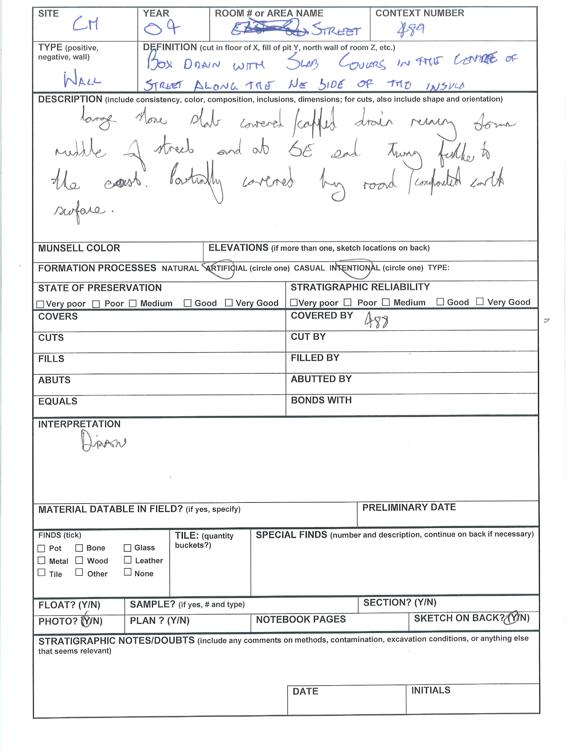 SITE CM
YEAR 04
ROOM # or AREA NAME STREET
CONTEXT NUMBER 489
TYPE (positive, negative, wall) WALL
DEFINITION (cut in floor of X, fill of pit Y, north wall of room Z, etc.)
BOX DRAIN WITH SLAB COVERS IN THE CENTRE OF
STREET ALONG THE NE SIDE OF THE INSULA
DESCRIPTION (include consistency, color, composition, inclusions, dimensions; for cuts, also include shape and orientation)
large stone slab covered/capped drain running down
middle of street and at SE end to
the east. Partially covered by road/compacted earth
surface.
MUNSELL COLOR
ELEVATIONS (if more than one, sketch locations on back)
FORMATION PROCESSES NATURAL ARTIFICIAL (circle one) CASUAL INTENTIONAL (circle one) TYPE:
STATE OF PRESERVATION
STRATIGRAPHIC RELIABILITY
Very poor Poor Medium Good Very Good
Very poor Poor Medium Good Very Good
COVERS
COVERED BY 488
CUTS
CUT BY
FILLS
FILLED BY
ABUTS
ABUTTED BY
EQUALS
BONDS WITH
INTERPRETATION
DRAIN
MATERIAL DATABLE IN FIELD? (if yes, specify)
PRELIMINARY DATE
FINDS (tick)
Pot Bone Glass
Metal Wood Leather
Tile Other None
TILE: (quantity buckets?)
SPECIAL FINDS (number and description, continue on back if necessary)
FLOAT? (Y/N)
SAMPLE? (if yes, # and type)
SECTION? (Y/N)
PHOTO? (Y/N)
PLAN ? (Y/N)
NOTEBOOK PAGES
SKETCH ON BACK? (Y/N)
STRATIGRAPHIC NOTES/DOUBTS (include any comments on methods, contamination, excavation conditions, or anything else
that seems relevant)
DATE
INITIALS